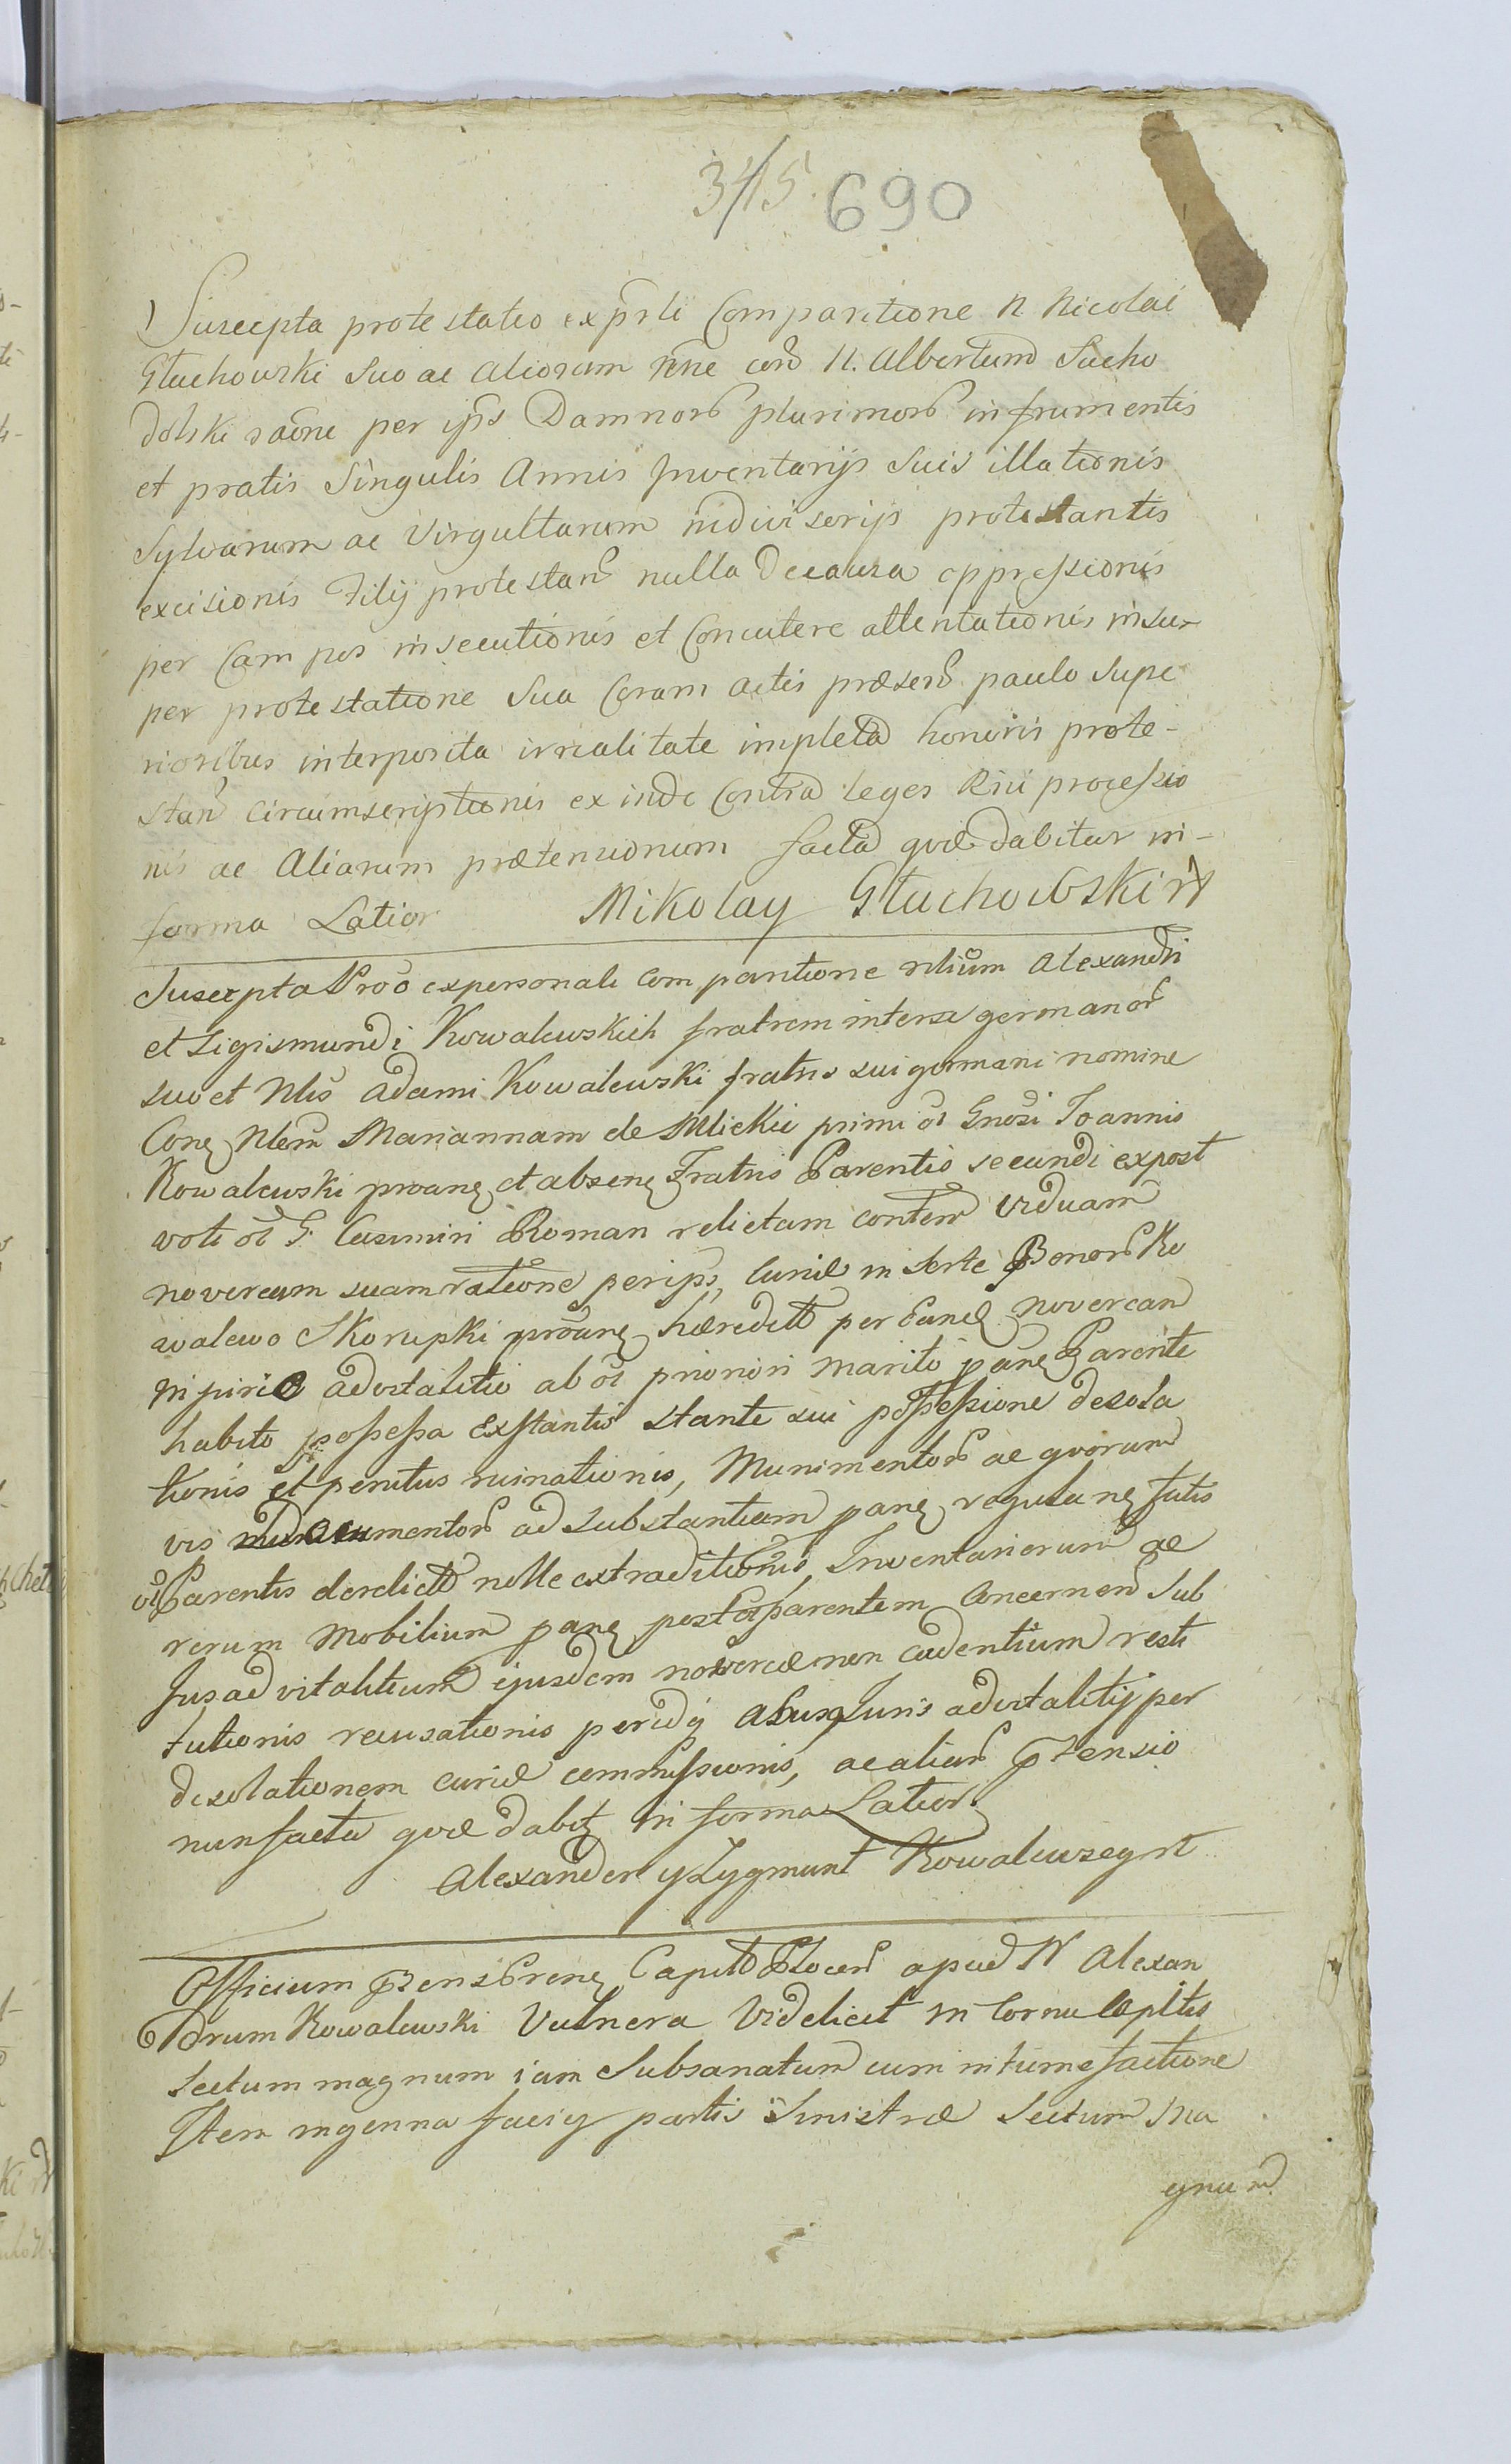 345 690
Suscepta protestatio ex prsli Comparitione N. Nicolai
Głuchowski suo ac aliorum nne con N. Albertum Sucho
dolski raõne per ips Damnor plurimor in frumentis
et pratis Singulis Annis Inventarijs suis illationis
Sylvarum ac Virgultarum indivisorijs protestantis
excisionis Filij protestan nulla de causa oppressionis
per Campos insecutionis et Concutere attentationis insu-
per protestatione sua Coram actis præsen paulo supe
rioribus interposita irrealitate impletã honoris prote-
stan circumscriptionis ex inde Contra leges Rni processio
nis ac Aliarum prætensionum factã quæ dabitur in-
forma Latior Mikołay Głuchowski
Suscepta Pro expersonali comparitione nlium Alexandri
et Sigismundi Kowalewskich fratrem interse germanor
suo et Nlis Adami Kowalewski fratris sui germani nomine
Con Nlem Mariannam de Mlickie primi ol Gnosi Joannis
Kowalewski proane et absene Fratris Parentis secundi expost
voti ol G. Casimiri Roman relictam conten viduam
novercam suam ratione per ips, Curiæ in Sorte Bonor Ko
walewo Skorupki proane hæredit per Eand novercam
in jurie advitalitio ab ol priori marito pane Parente
habito possessa Exstantis stante sui possessione desola
tionis et penitus ruinationis, Munimentor ac quorum
vis documentor ad substantiam pane regulane fatis
ol Parentis derelict nolle extraditionis, Inventariorum ac
rerum Mobilium pane post ol parentem Concernen Sub
Jus advitalitium ejusdem novercæ non cadentium resti
tutionis recusationis peridq abusq Juris advitalitij per
desolationem curiæ commissionis, ac aliar ptensio
num facta quæ dabit in forma Latior.
Alexander y Zygmunt Kowalewscy
Officium prens Prene Capit Plocen apud N Alexan
drum Kowalewski Vulnera Videlicet in Cornu Capitis
Sectum magnum iam Subsanatum cum intumefactione
Item in genna faciey partis Sinistræ Sectum Ma
gnum